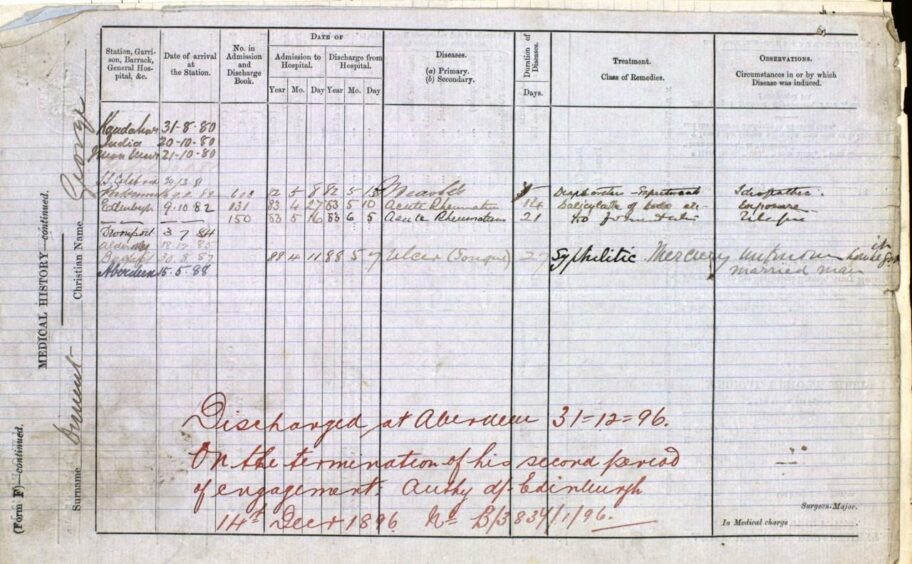 (Form F)—continued.
MEDICAL HISTORY—continued.
Surname
Christian Name George
Station, Garri-
son, Barrack,
General Hos-
pital, &c.
Date of arrival
at the Station.
No. in
Admission
and
Discharge
Book.
DATE OF
Admission to
Hospital.
Discharge from
Hospital.
Year Mo. Day Year Mo. Day
Diseases.
(a) Primary.
(b) Secondary.
Duration of
Diseases.
Days.
Treatment.
Class of Remedies.
OBSERVATIONS.
Circumstances in or by which
Disease was induced.
Kandahar 31-8-80
India 20-10-80
21-10-80
82 5
Edinburgh 9.10.82 131 83 4 27 83 5 10 Acute Rheumatism 14 Salicylate of Soda Exposure
150 83 5 16 83 6 5 Acute Rheumatism 21
Devonport 3 7 84
30.8.87 88 4 11 88 5 7 Ulcer (Tongue) 27 Syphilitic Mercury unknown is
married man
Aberdeen 15.5.88
Discharged, at Aberdeen 31=12=96.
On the termination of his second period
of engagement. Authy df. Edinburgh
14th Decr 1896 No B/3834/1/96.
Surgeon-Major.
In Medical charge